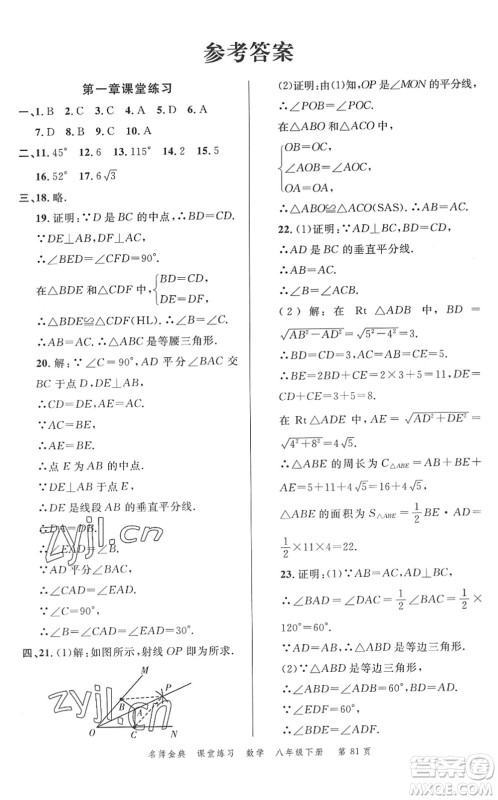 参考答案
第一章课堂练习
一、1. B 2. C 3. C 4. A 5. D 6. A
7. D 8. B 9. C 10. A
二、11. 45° 12. 6 13. 115° 14. 2 15. 5
16. 52° 17. 6√3
三、18. 略.
19. 证明：∵D 是 BC 的中点，∴BD=CD.
∵DE⊥AB，DF⊥AC，
∴∠BED=∠CFD=90°.
在△BDE 和△CDF 中，{BD=CD,
DE=DF,
∴△BDE≌△CDF(HL). ∴∠B=∠C.
∴AB=AC. ∴△ABC 是等腰三角形.
20. 解：∵∠C=90°，AD 平分∠BAC 交
BC 于点 D，DE⊥AB 于点 E，
∴CD=DE.
∴AC=AE.
∵AC=BE，
∴AE=BE.
∴点 E 为 AB 的中点.
∴DE 是线段 AB 的垂直平分线.
∴DA=DB.
∴∠EAD=∠B.
∵AD 平分∠BAC，
∴∠CAD=∠EAD=∠B.
∵∠C=90°，
∴∠CAD=∠EAD=∠B=30°.
四、21. (1)解：如图所示，射线 OP 即为所求.
M
B
P
A
O
C
N
(2)证明：由(1)知，OP 是∠MON 的平分线，
∴∠POB=∠POC.
在△ABO 和△ACO 中，
{OB=OC,
∠AOB=∠AOC,
OA=OA,
∴△ABO≌△ACO(SAS). ∴AB=AC.
22. (1)证明：∵AD⊥BC，BD=CD，
∴AD 是 BC 的垂直平分线.
∴AB=AC.
(2) 解：在 Rt △ADB 中，BD =
√(AB²-AD²)=√(5²-4²)=3.
∴BD=CD=3，AB=AC=CE=5.
∴BE=2BD+CE=2×3+5=11，
DE=CD+CE=3+5=8.
在 Rt△ADE 中，AE=√(AD²+DE²)=
√(4²+8²)=4√5.
∴△ABE 的周长为 C△ABE = AB+BE+
AE=5+11+4√5=16+4√5，
△ABE 的面积为 S△ABE = 1/2 BE·AD=
1/2×11×4=22.
23. 证明：(1)∵AB=AC，AD⊥BC，
∴∠BAD=∠DAC=1/2∠BAC=1/2×
120°=60°.
∵AD=AB，∴△ABD 是等边三角形.
(2)∵△ABD 是等边三角形，
zyjl.cn
zyjl.cn
名师金典 课堂练习 数学 八年级下册 第 81 页